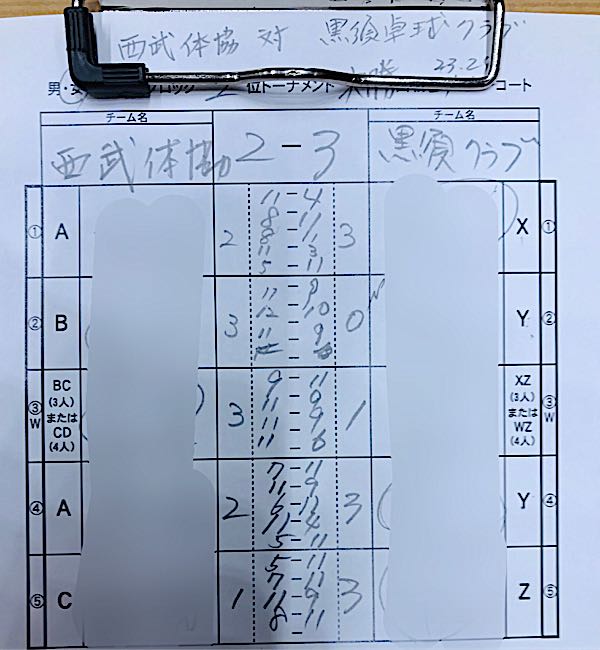 西武体協 対 黒須卓球クラブ
23.2
男・女 ブロック 位トーナメント コート
チーム名 チーム名
西武体協 2-3 黒須クラブ
① A 2 3 X ①
11-4
8-11
8-11
11-3
5-11
② B 3 0 Y ②
11-9
12-10
11-9
③ W BC (3人) または CD (4人) 3 1 XZ (3人) または WZ (4人) ③ W
9-11
11-9
11-9
11-6
④ A 2 3 Y ④
7-11
11-9
6-11
11-4
5-11
⑤ C 1 3 Z ⑤
5-11
7-11
11-9
8-11